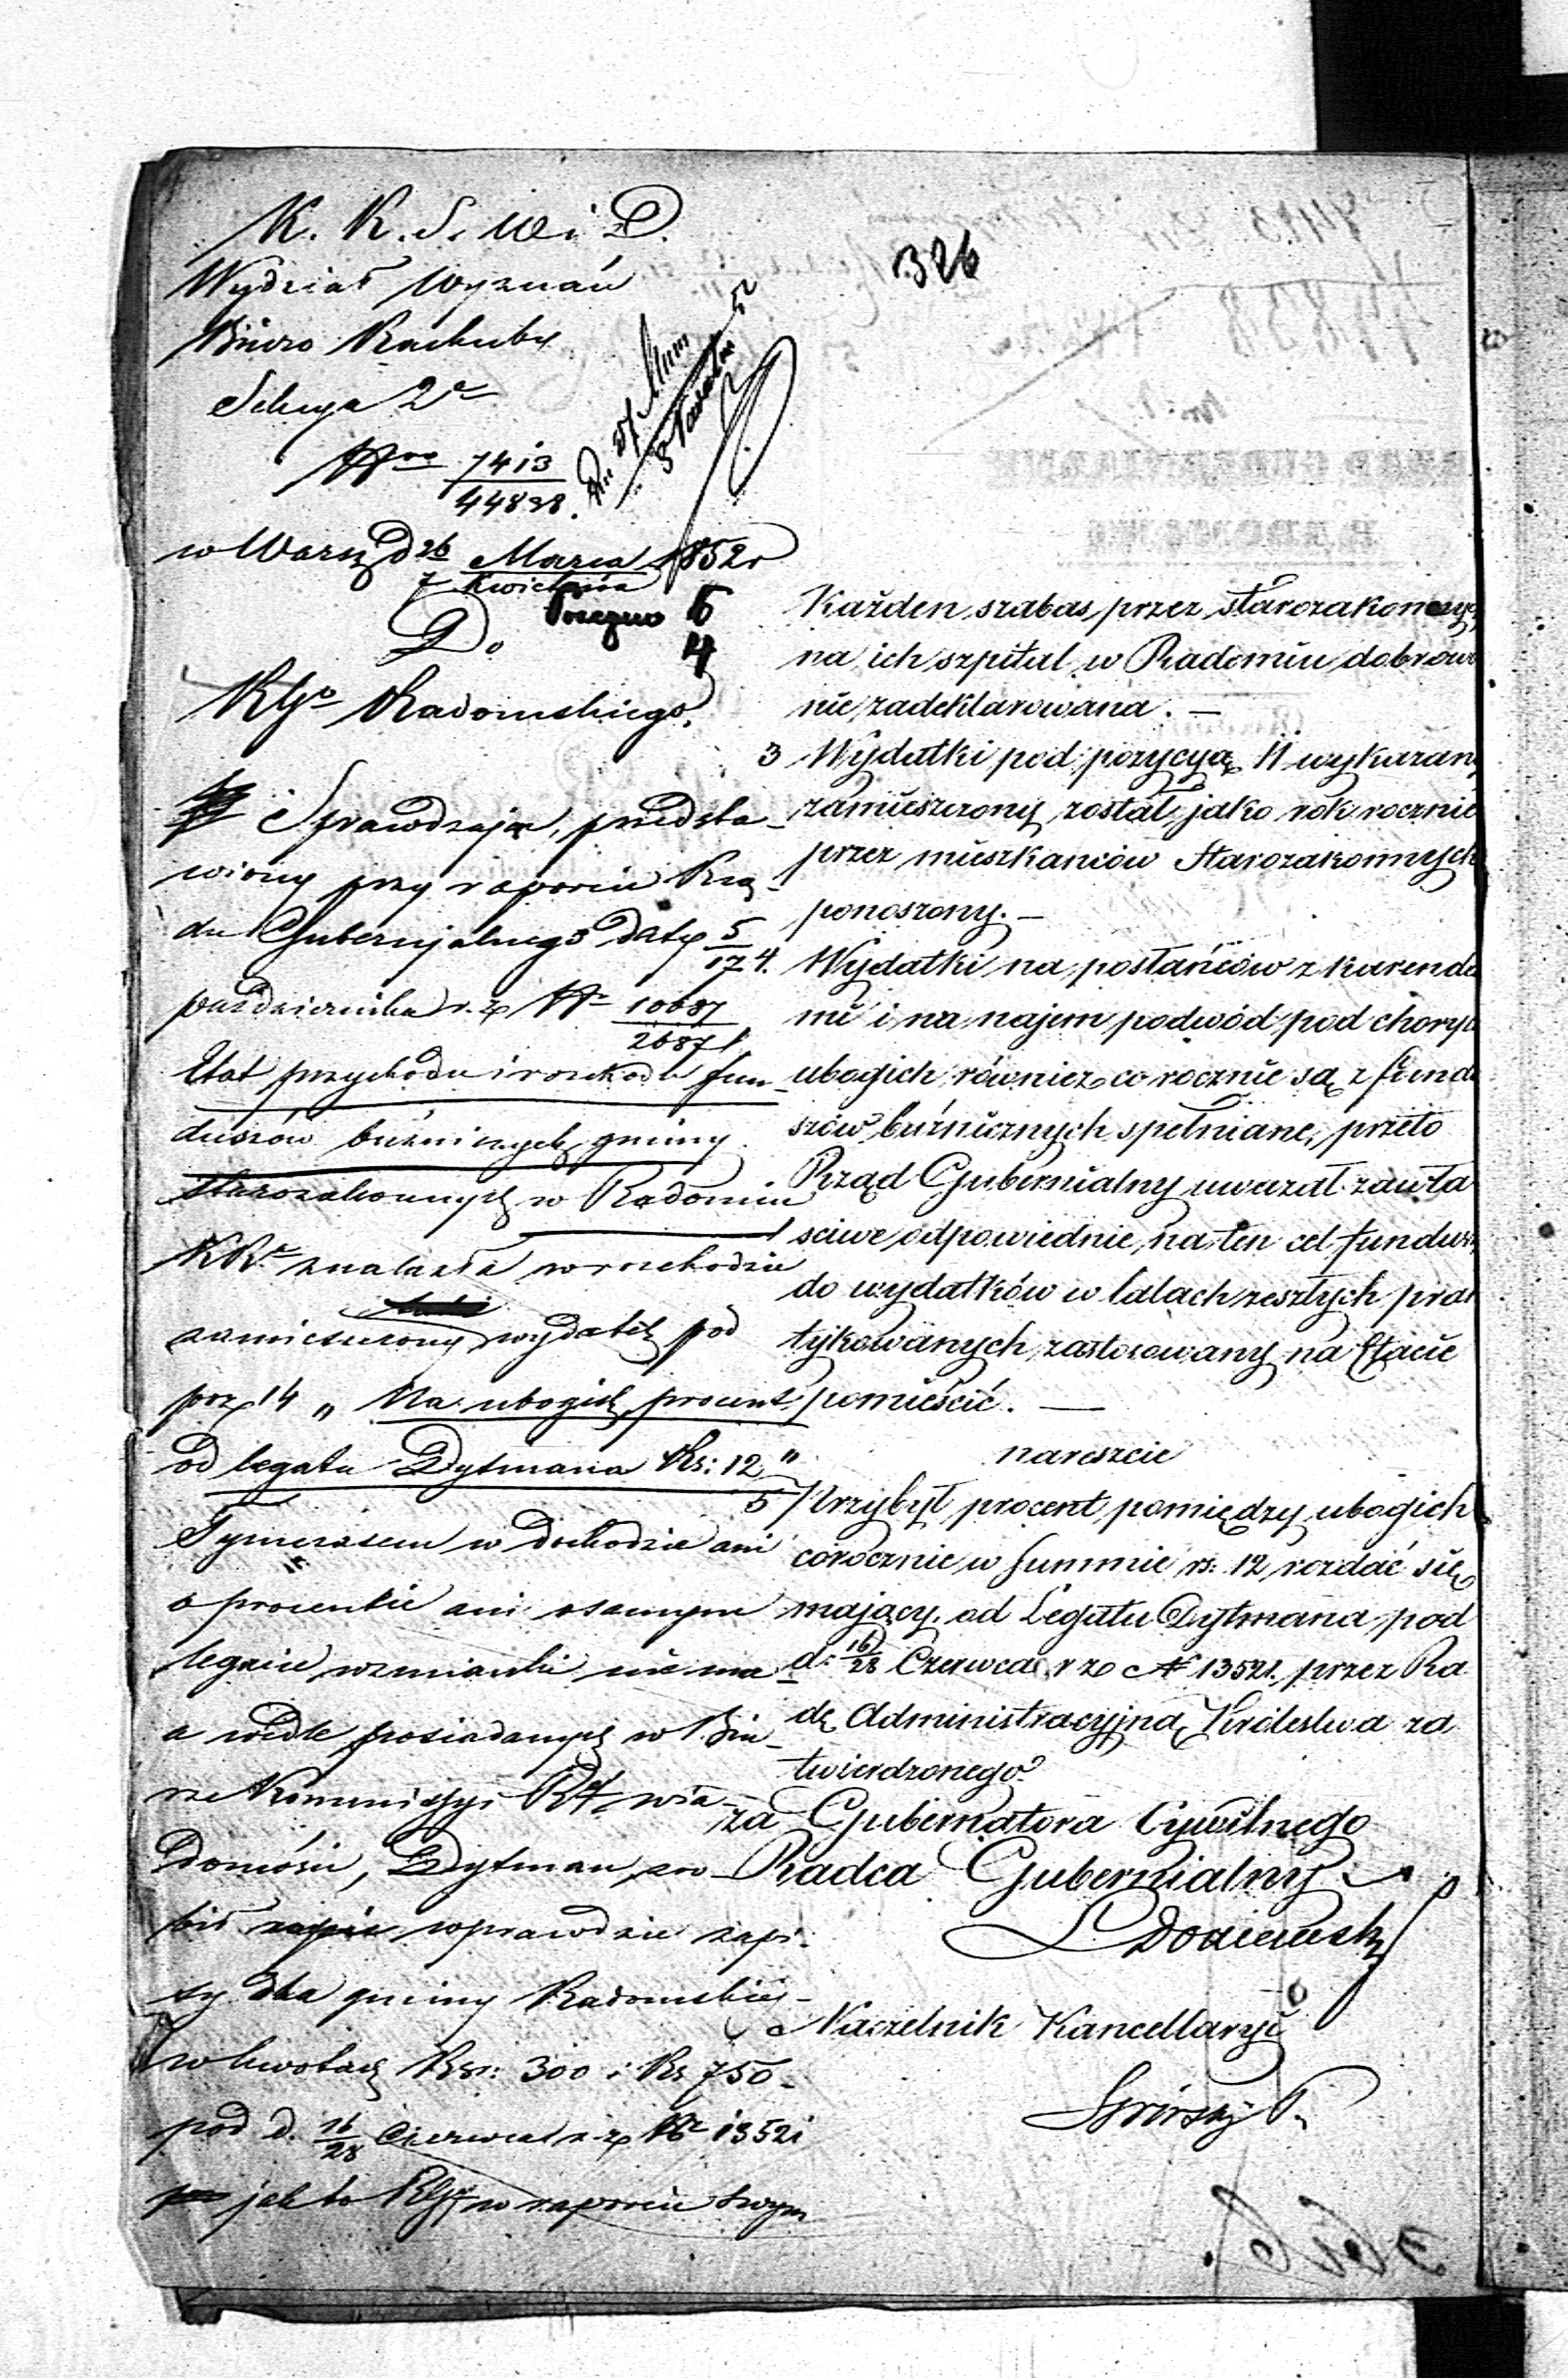 326
K. K. S. W. i D.
Wydział Wyznań
Biuro Rachuby
Sekcya 2a
Nro 7413
44828.
w Warsz. d 26 Marca 1852 r
7 Kwietnia
Do
Rgo Radomskiego.
Sprawdzając, przedsta-
wiony przy raporcie Rzą-
du Gubernjalnego daty 5
17
października r. z. Nr 10687
26871
Etat przychodu i rozchodu fun-
duszów bużniczych gminy
starozakonnych w Radomiu
KR. znalazła w rozchodzie
zamieszczony wydatek pod
poz 14 „ Na ubogich procent
od legatu Dytmana Rs: 12 "
Tymczasem w dochodzie ani
o procencie ani o samym
legacie wzmianki nie ma
a wedle posiadanych w Biu-
rze Kommissyi Rz. wia-
domości, Dytman zro-
bił wprawdzie zapi-
sy dla gminy Radomskiéj
w kwotach Rsr: 300 i Rs 750
pod d. 16 Czerwca r. z. Nr 13521
28
jak to RG w raporcie swym
Każden szabas, przez starozakonnyc
na ich szpital w Radomiu dobrowo
nie zadeklarowana. —
3 Wydatki pod pozycyą 11 wykazan
zamieszczony został jako rok rocznie
przez mieszkańców Starozakonnych
ponoszony. —
4. Wydatki na posłańców z karenda
mi i na najem podwód pod choryc
ubogich również co rocznie są z fundu
szów buźnicznych spełniane, przeto
Rząd Gubernialny uważał za wła
sciwe odpowiednie na ten cel fundusz
do wydatków w latach zeszłych prak
tykowanych zastosowany na Etacie
pomieścić. —
nareszcie
5 Przybył procent pomiędzy ubogich
corocznie w summie rs: 12 rozdać się
mający, od Legatu Dytmana pod
d: 16 Czerwca r z Nr 13521. przez Ra
28
dę Administracyjną Królestwa za
twierdzonego.
za Gubernatora Cywilnego
Radca Gubernialny
Naczelnik Kancellaryi